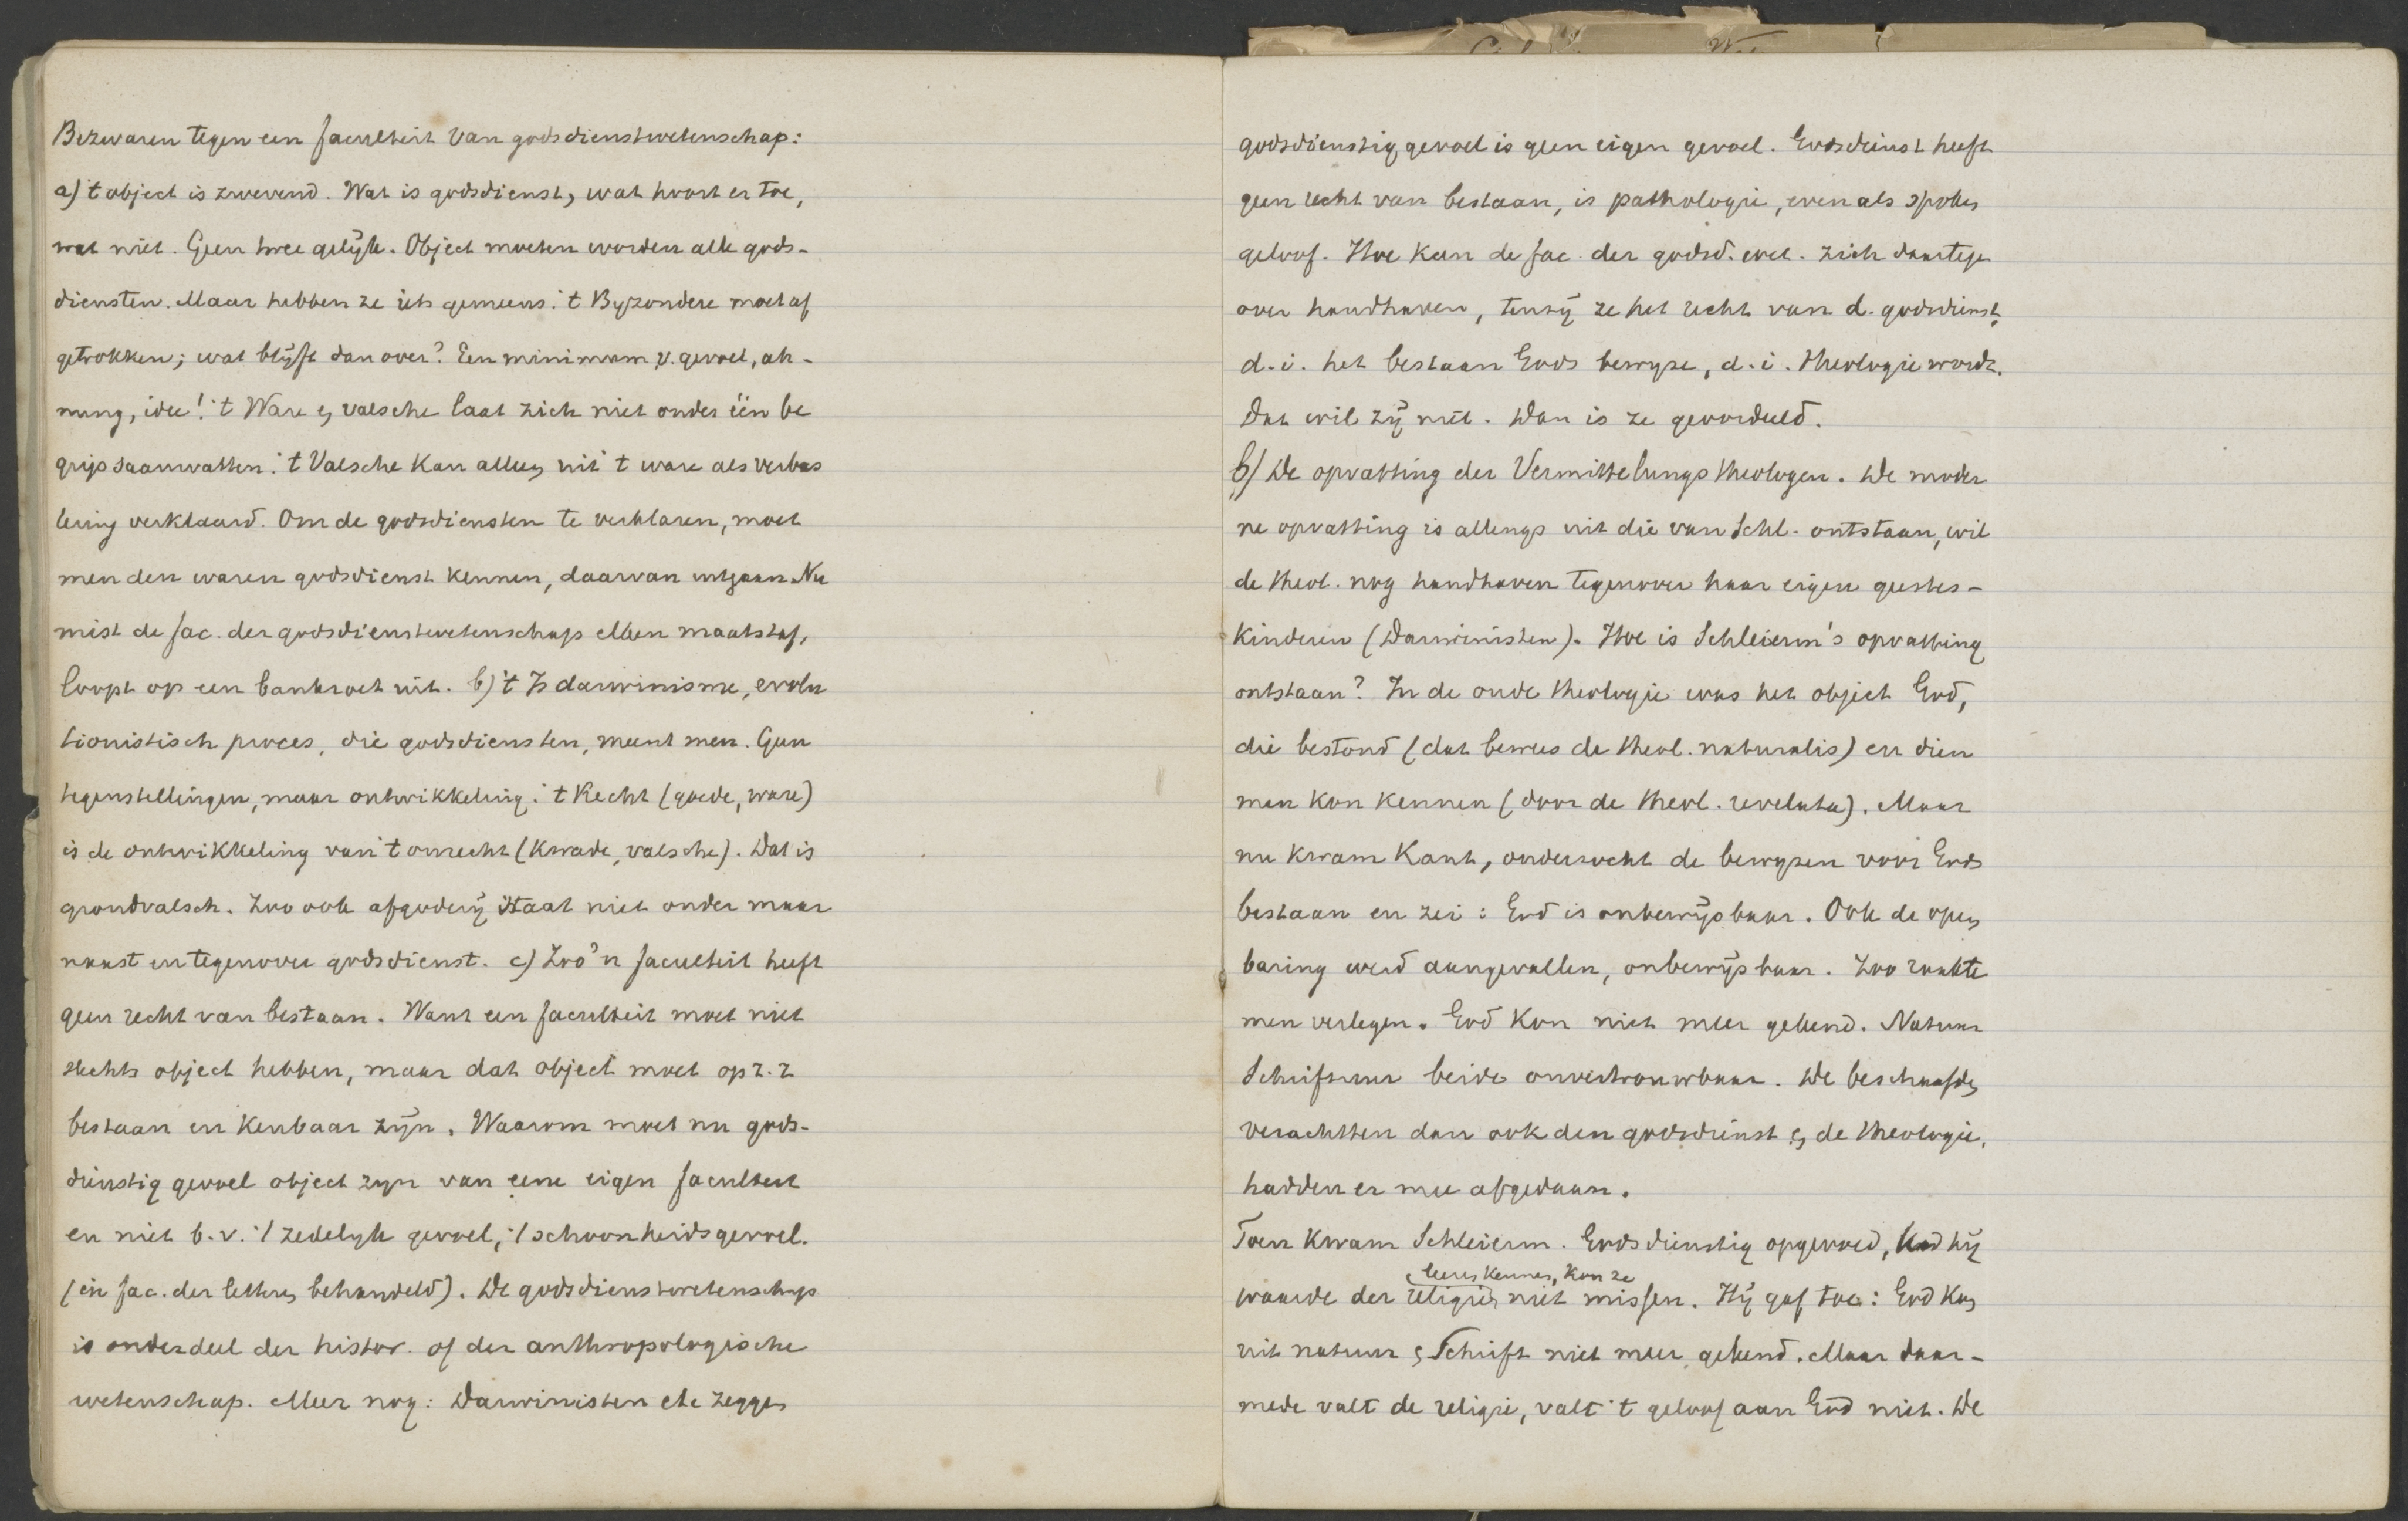 Bezwaren tegen een faculteit van godsdienstwetenschap:
a) 't object is zwevend. Wat is godsdienst, wat hoort er toe,
wat niet. Geen twee gelijk. Object moeten worden alle gods-
diensten. Maar hebben ze iets gemeens. 't Byzondere moet af
getrokken; wat blijft dan over? Een minimum v. gevoel, ah-
nung, idee! 't Ware en valsche laat zich niet onder één be
grip saamvatten. 't Valsche kan alleen uit 't ware als verbas
tering verklaard. Om de godsdiensten te verklaren, moet
men den waren godsdienst kennen, daarvan uitgaan. Nu
mist de fac. der godsdienstwetenschap elken maatstaf,
loopt op een bankroet uit. b) 't Is darwinisme, evolu
tionistisch proces, die godsdiensten, meent men. Geen
tegenstellingen, maar ontwikkeling. 't Recht (goede, ware)
is de ontwikkeling van 't onrecht (kwade, valsche). Dat is
grondvalsch. Zoo ook afgoderij staat niet onder maar
naast en tegenover godsdienst. c) Zoo'n faculteit heeft
geen recht van bestaan. Want een faculteit moet niet
slechts object hebben, maar dat object moet op z. z
bestaan en kenbaar zijn. Waarom moet nu gods-
dienstig gevoel object zyn van eene eigen faculteit
en niet b.v. 't zedelyk gevoel, 't schoonheidsgevoel.
(in fac. der letteren behandeld). De godsdienstwetenschap
is onderdeel der histor. of der anthropologische
wetenschap. Meer nog: Darwinisten etc zeggen
godsdienstig gevoel is geen eigen gevoel. Godsdienst heeft
geen recht van bestaan, is pathologie, even als spoken
geloof. Hoe kan de fac. der godsd. wet. zich daartegen
over handhaven, tenzij ze het recht van d. godsdienst,
d.i. het bestaan Gods bewyze, d.i. theologie wordt.
Dat wil zij niet. Dan is ze geoordeeld.
b) De opvatting der Vermittelungs theologen. De moder
ne opvatting is allengs uit die van Schl. ontstaan, wil
de theol. nog handhaven tegenover haar eigen geestes-
kinderen (Darwinisten). Hoe is Schleierm's opvatting
ontstaan? In de oude theologie was het object God,
die bestond (dat bewees de theol. naturalis) en dien
men kon kennen (door de theol. revelata). Maar
nu kwam Kant, onderzocht de bewyzen voor Gods
bestaan en zei: God is onbewijsbaar. Ook de open
baring werd aangevallen, onbewijsbaar. Zoo raakte
men verlegen. God kon niet meer gekend. Natuur
Schriftuur beide onvertrouwbaar. De beschaafden
verachtten dan ook den godsdienst en de theologie,
hadden er mee afgedaan.
Toen kwam Schleierm. Godsdienstig opgevoed, had hij
leeren kennen, kon ze
waarde der religie niet missen. Hij gaf toe: God kan
uit natuur en Schrift niet meer gekend. Maar daar-
mede valt de religie, valt 't geloof aan God niet. De